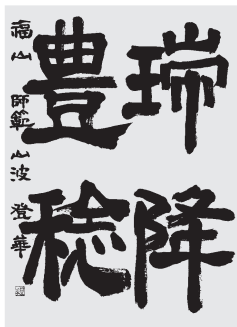 瑞降
豊稔
福山 師範 山波 澄華